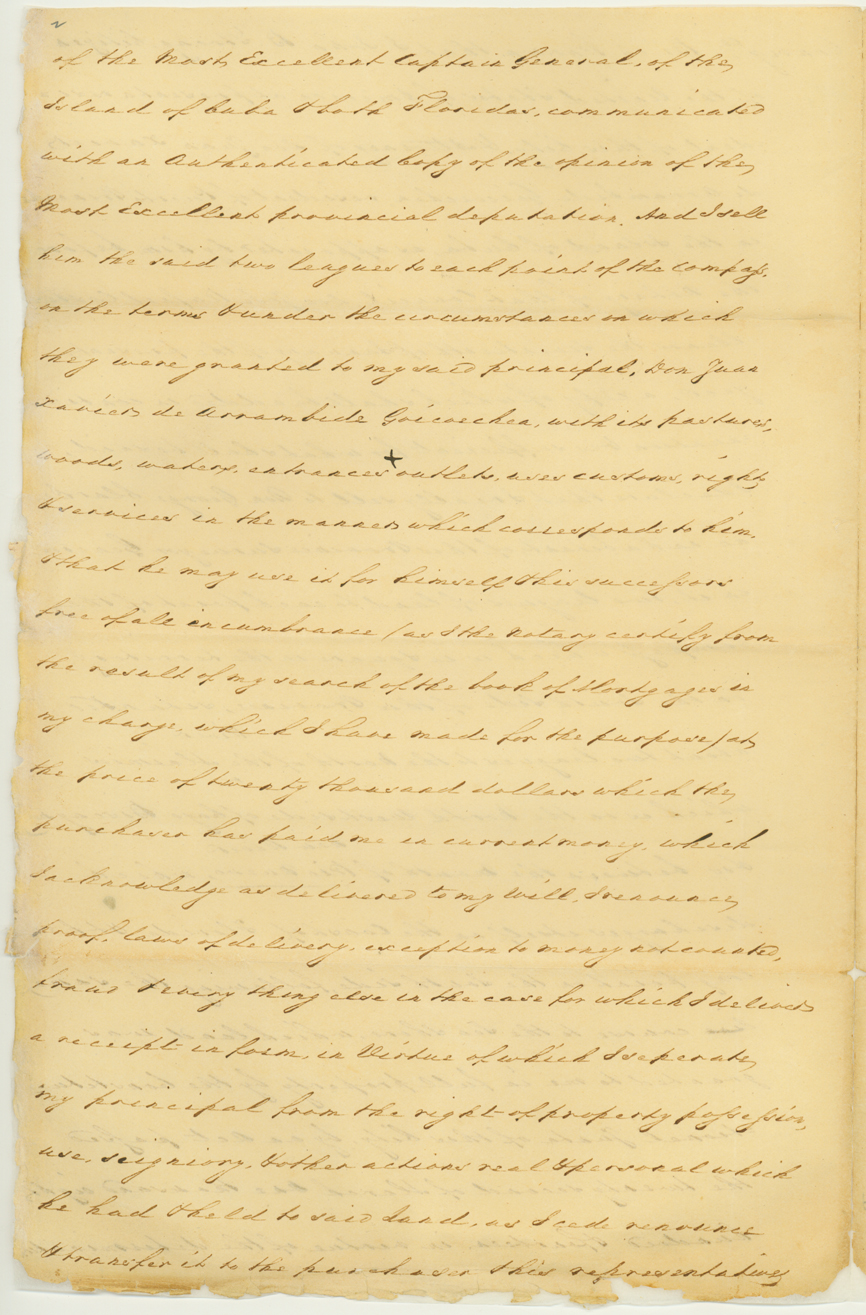 of the Most Excellent Captain General, of the
Island of Cuba & both Floridas, communicated
with an Authenticated Copy of the opinion of the
Most Excellent provincial deputation. And I sell
him the said two leagues to each point of the compass,
on the terms & under the circumstances on which
they were granted to my said principal, Don Juan
Xavier de Arrambide Goicoechea, with its pastures,
woods, waters, entrances + outlets, uses customs, rights
& services in the manner which corresponds to him.
& that he may use it for himself & his successors
free of all incumbrance (as I the Notary certify from
the result of my search of the book of Mortgages in
my charge, which I have made for the purpose) at
the price of twenty thousand dollars which the
purchaser has paid me in current money, which
I acknowledge as delivered to my Will, I renounce
proof, laws of delivery, exception to money not counted,
fraud & every thing else in the case for which I deliver
a receipt in form, in Virtue of which I seperate
my principal from the right of property possession,
use, seigniory, & other actions real & personal which
he had & held to said Land, as I cede renounce
& transfer it to the purchaser & his representatives